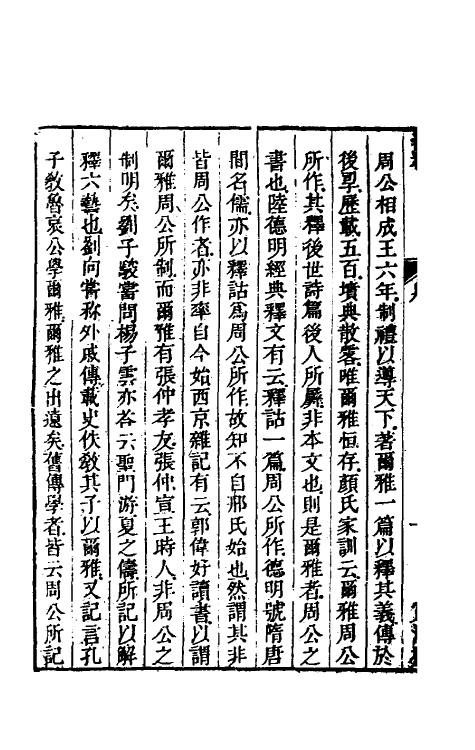 周公相成王六年制禮以導天下著爾雅一篇以釋其義傳於
後㝵歷載五百墳典散落唯爾雅恒存顏氏家訓云爾雅周公
所作其釋後世詩篇後人所羼非本文也則是爾雅者周公之
書也陸德明經典釋文有云釋詁一篇周公所作德明號隋唐
間名儒亦以釋詁爲周公所作故知不自邢氏始也然謂其非
皆周公作者亦非率自今始西京雜記有云郭偉好讀書以謂
爾雅周公所制而爾雅有張仲孝友張仲宣王時人非周公之
制明矣劉子駿嘗問楊子雲亦答云聖門游夏之儔所記以解
釋六藝也劉向嘗稱外戚傳載史佚敎其子以爾雅又記言孔
子敎魯哀公學爾雅爾雅之出遠矣舊傳學者皆云周公所記